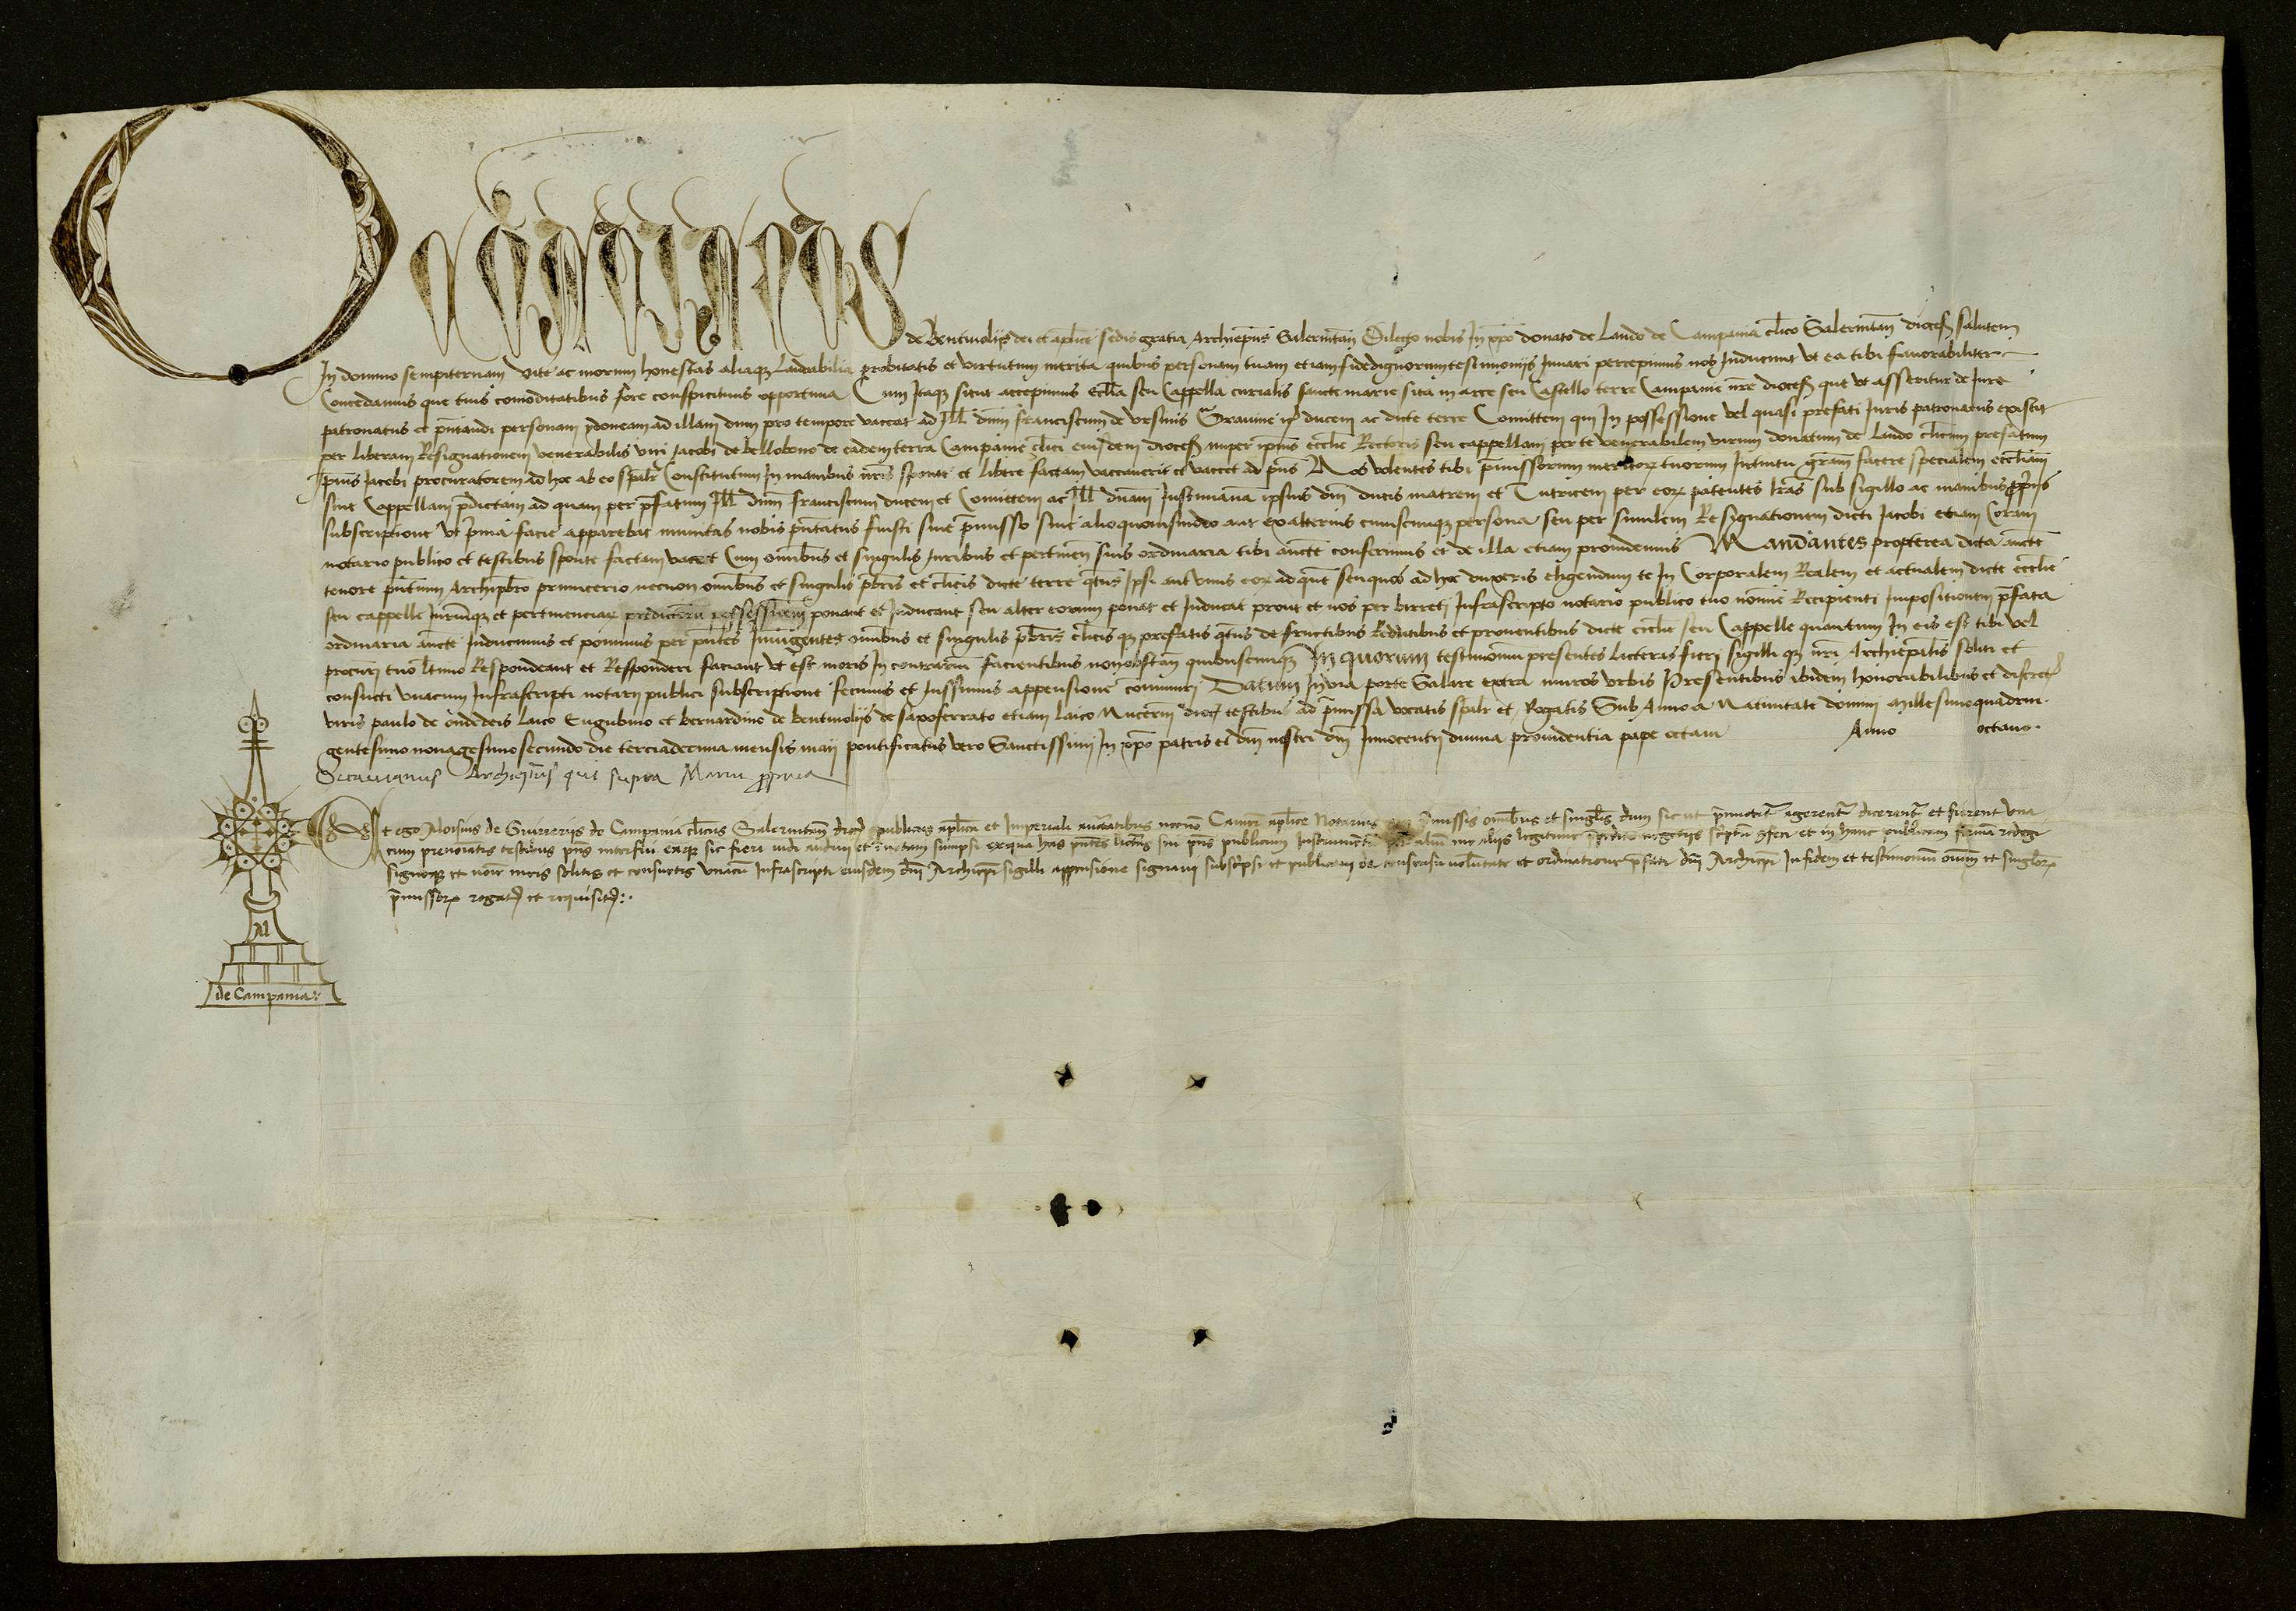 Octavianus de Bentivoliis dei et aplice sedis gratia Archiepus Salernitan Dilecto nobis In xpo donato de Lando de Campania clico Salernitan dioces salutem
In domino sempiternam Vite ac morum honestas aliaq laudabilia probitatis et virtutum merita quibus personam tuam etiam fidedignorum testimoniis Iuvari percepimus nos Inducunt ut ea tibi favorabiliter
Concedamus que tuis comoditatibus fore conspicimus opportuna Cum Itaq sicut accepimus Ecclia seu Cappella curialis sancte marie sita in arce seu Castello terre Campanie nre dioces que ut asseritur de Iure
patronatus et pntandi personam ydoneam ad illam dum pro tempore vaccat ad Ill dnm franciscum de Ursinis Gravine ducem ac dicte terre Comittem qui In possessione vel quasi prefati Iuris patronatus existit
per liberam Resignationem venerabilis viri Jacobi de bellobono de eadem terra Campanie clici eiusdem dioces nuper ipius ecclie Rectoris seu cappellani per te venerabilem virum donatum de Lando clicum prefatum
ipius Jacobi procuratorem ad hoc ab eo spalr Constitutum In manibus nris sponte et libere factam vaccaverit et vaccet ad pns Nos volentes tibi pmissorum meritor tuorum Intuitu gram facere specialem eccliam
sive Cappellam pdictam ad quam per pfatum Ill dnm franciscum ducem et Comittem ac Ill dnam Iustiniana ipsius dni ducis matrem et Tutricem per eor patentes lras sub sigillo ac manibus ppriis
subscriptione ut prima facie apparebat munitas nobis pntatus fuisti sive pmisso sive alio quovismodo aut ex alterius cuiuscumq persona seu per similem Resignationem dicti Jacobi etiam Coram
notario publico et testibus sponte factam vacet Cum omibus et singulis Iuribus et pertinen suis ordinaria tibi aucte conferimus et de illa etiam providemus Mandantes propterea dicta aucte
tenore pntium Archipbro primicerio necnon omibus et singulis pbris et clicis dicte terre qtus Ipsi aut unus eor ad que seu quos ad hoc duxeris eligendum te In Corporalem Realem et actualem dicte ecclie
seu cappelle Iuriumq et pertinenciar predictoru possessionem ponant et Inducant seu alter eorum ponat et Inducat prout et nos per birreti Infrascripto notario publico tuo nomine Recipienti Impositionem pfata
ordinaria aucte Inducimus et ponimus per pntes Iniungentes omibus et singulis pbris clicis q prefatis qtus de fructibus Redditibus et proventibus dicte ecclie seu Cappelle quantum In eis est tibi vel
procuri tuo ltimo Respondeant et Responderi faciant ut est moris In contrarium facientibus nonobstan quibuscumq In quorum testimonium presentes licteras fieri sigilli q nri Archiepalis soliti et
consueti unacum Infrascripti notarii publici subscriptione fecimus et Iussimus appensione comuniri Datum In via porte Salare extra muros urbis Presentibus ibidem honorabilibus et discretis
viris paulo de ondideis laico Eugubino et bernardino de bentivoliis de saxoferrato etiam laico Nucerin dioces testibus ad pmissa vocatis spalr et Rogatis Sub Anno a Nativitate domini millesimoquadrin
gentesimo nonagesimo secundo die terciadecima mensis maii pontificatus vero Sanctissimi In xpo patris et dni nostri dni Innocentii divina providentia pape octavi Anno octavo.
Octavianus Archieps qui supra Manu ppria
Et ego Aloisius de Guirreriis de Campania clicus Salernitan dioc publicus aplica et Imperiali auctatibus necno Camere aplice Notarius pmissis omibus et singlis dum sic ut pmictit agerent dicerent et fierent una
cum prenotatis testibus pns interfui eaq sic fieri vidi audivi et notam sumpsi ex qua has pntes licteras sive pns publicum Instrumentu per aliu me aliis legitime negotiis scriptu cfeci et in hanc publicam forma redegi
signoq et noie meis solitis et consuetis unacu Infrascripti eiusdem dni Archiepi sigilli appensione signavi subscripsi et publicavi de consensu voluntate et ordinatione pfati dni Archiepi In fidem et testimoniu oium et singlor
pmissor rogatus et requisitus:
Al
de Campania: